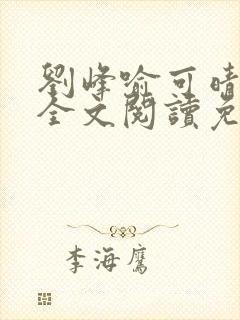 劉峰喻可晴
全文閱讀免
李海鷹